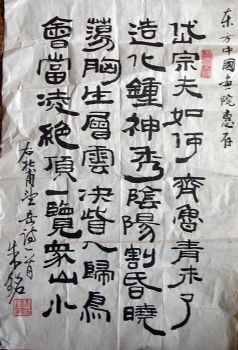 东方中國画院惠存
岱宗夫如何齊魯青未了
造化鍾神秀陰陽割昏曉
蕩胸生層雲決眥入歸鳥
會當凌絕頂一覽眾山小
右杜甫望岳詩一首